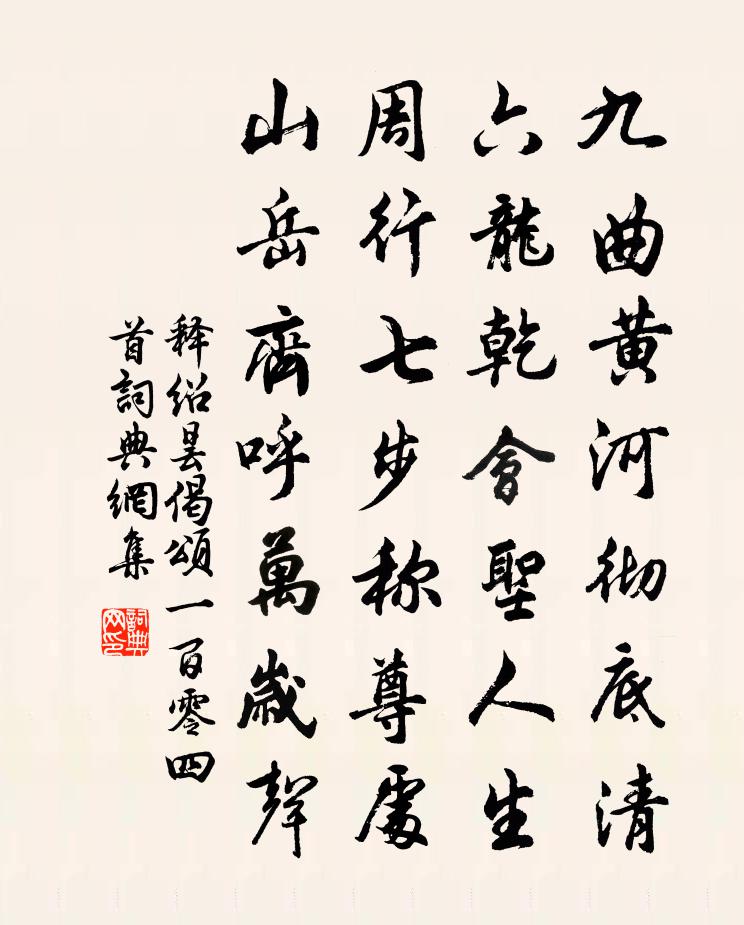 九曲黄河彻底清
六龍乾會聖人生
周行七步称尊處
山岳齊呼萬歲聲
释绍昙偈頌一百零四
首詞典網集
詞典
网印